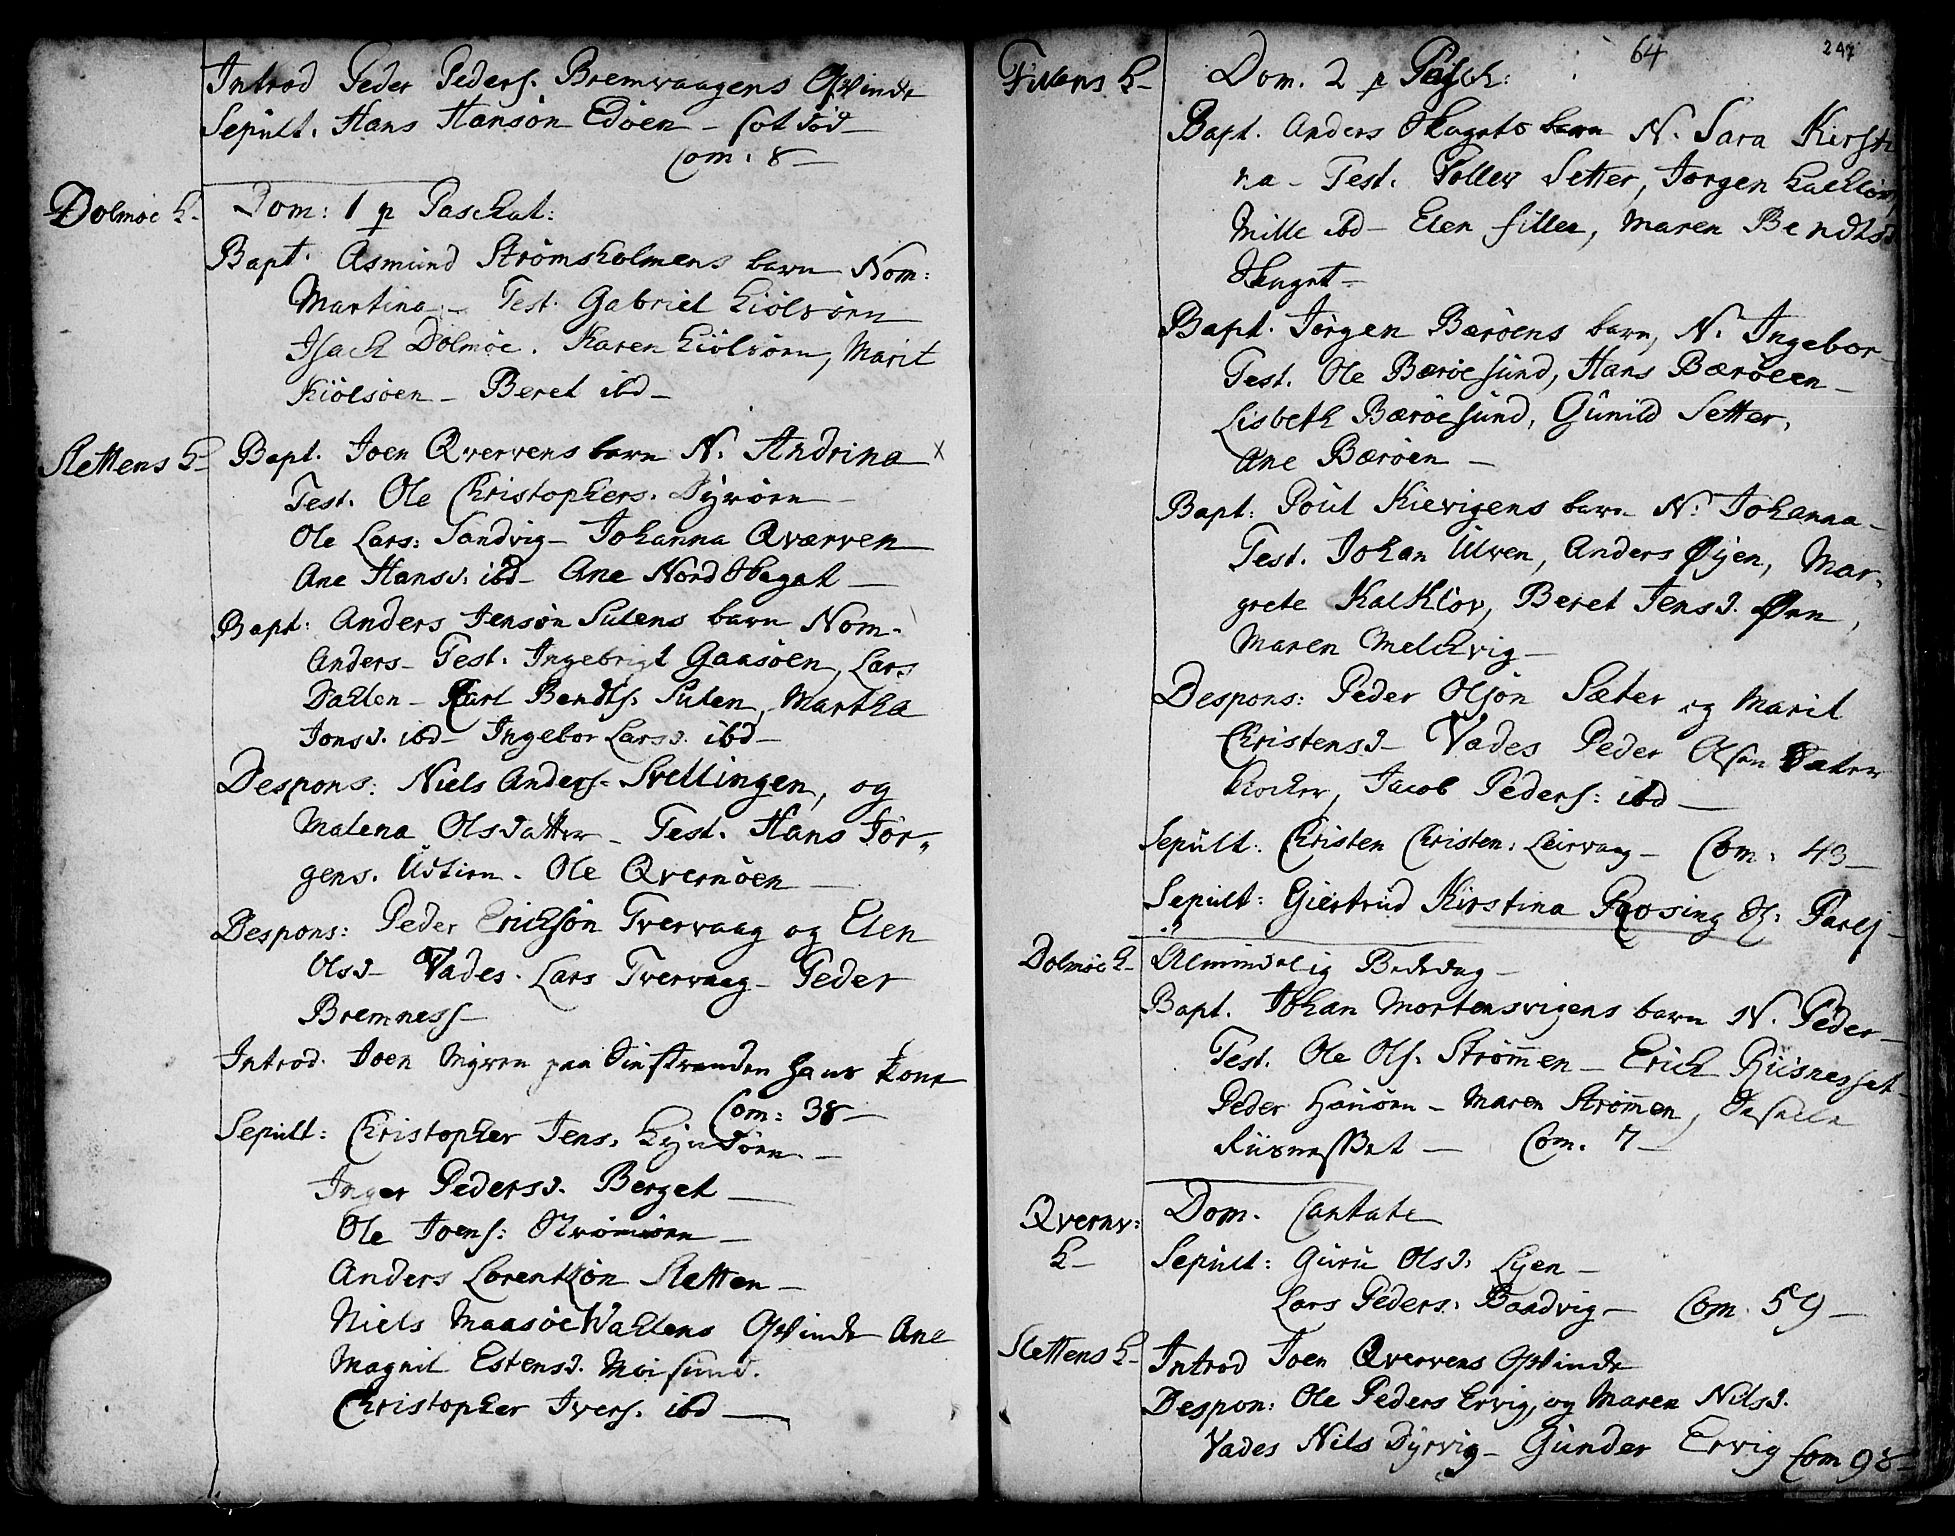 Introd Peder Peders. Bremvaagens Qvinde
Sepult. Hans Hansøn Edøen – sot død –
Com. 8 –
Dolmøe K– Dom: 1 p Paschat:
Bapt. Asmund Strømsholmens barn Nom:
Martina – Test. Gabriel Kiölsöen
Isach Dolmøe. Karen Kiölsöen, Marit
Kiölsöen – Beret ibd –
Slettens K– Bapt. Joen Qvervens barn N. Andrina x
Test. Ole Christophers. Dyrøen
Ole Lars: Sandvig – Johanna Qværven
Ane Hansd. ibd – Ane Nord Skaget –
Bapt: Anders Jensøn Sulens barn Nom.
Anders – Test. Ingebrigt Gaasøen, Lars
Dahlen – Karl Bendts. Sulen, Martha
Jonsd. ibd – Ingebor Larsd. ibd –
Despons: Niels Anders. Svellingen, og
Malena Olsdatter – Test. Hans Jör„
gens. Ustien – Ole Qvernöen –
Despons: Peder Erichsön Tvervaag og Elen
Olsd – Vades. Lars Tvervaag – Peder
Bremness –
Introd. Joen Myren paa Sinstranden hans kone
Com: 38 –
Sepult: Christopher Jens. –
Inger Pedersd. Berget –
Ole Joens: Strömöen –
Anders Lorentzön Sletten –
Niels Maasøe Wahlens Qvinde Ane
Magnil Estensd. Moisund.
Christopher Ivers. ibd –
64 247
Fillens K– Dom. 2 p Pasch:
Bapt. Anders Skagets barn N. Sara Kirsti
na – Test. Toller Setter, Jørgen
Mille ibd – Elen Fillen, Maren Bendtsd
Skaget –
Bapt. Jörgen Bæröens barn, N. Ingebor –
Test. Ole Bæröesund, Hans Bæröeen –
Lisbeth Bæröesund, Gunild Setter,
Ane Bæröen –
Bapt: Poul Kievigens barn N. Johanna –
Test. Johan Ulven, Anders Øyen, Mar„
grete Kalkløv, Beret Jensd. Øen,
Maren Melchvig –
Despons: Peder Olsön Sæter og Marit
Christensd – Vades Peder Olsen Sæter
Klocker, Jacob Peders: ibd –
Sepult. Christen Christen. Leirvaag – Com. 43 –
Sepult: Giertrud Kirstina Rosing
Dolmøe K– Almindelig Bededag –
Bapt. Johan Mortensvigens barn N. Peder –
Test. Ole Ols. Strömen – Erich Riisnesset –
Peder – Maren Strömen,
Riisnesset – Com. 7 –
Qvernv: K– Dom. Cantate
Sepult: Guru Olsd. Lyen –
Lars Peders. Baadvig – Com. 59 –
Slettens K– Introd Joen Qvervens Qvinde
Despon: Ole Peders Ervig, og Maren Nilsd.
Vades Nils Dyrvig – Gunder Ervig Com 98 –